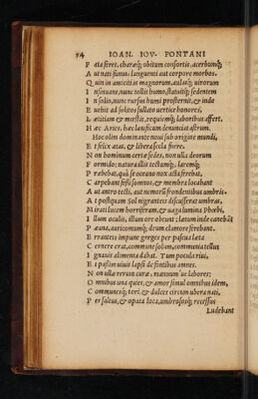 94 IOAN. IOV. PONTANI
F ata feret, charaq; obitum consortis, acerbonq;
A ut nati funus, languenti aut corpore morbos.
Q uin in amicitias magnorum, aulasq; uirorum
I nsenuare, nunc tollit humo, statuitq; sedentem
I n solio, nunc rursus humi prosternit, & inde
E uehit ad solitos sullata uertice honores,
L ætitiam & mæstis, requiemq; laboribus affert.
H æc Aries. hæc lanificum denunciat astrum.
Hoc olim dominante noui sub origine mundi,
E t felix ætas, & libera secla fuere.
N on hominum certæ sedes, non ulla deorum
F ormido: natura illis testamq;, laremq;
P ræbebat, quâ se oceano nox atra ferebat,
C arpebant fessi somnos, & membra locabant
A ut antro tecti, aut nemorû frondentibus umbris.
A t postquam Sol nigrantes discusserat umbras,
M irati lucem horriferam, & uaga lumina Phoebi,
I llum oculis, illum ore obeunt: latum inde canebât
P æana, auricomumq; deum clamore ferebant.
E rrantes impune greges per pascua læta
C ernere erat, commune solum, communia tellus
I gnauis alimenta dabat. Tum pocula riui,
E t passim uiuis lapsi de fontibus amnes.
N on ulla rerum curæ, mannum'ue labores:
O mnibus una quies, & amor simul omnibus idem,
C ommunesq; tori, & dulces circum ubera nati,
P er saltus, & opaca loca, umbrososq; recessus
Ludebant